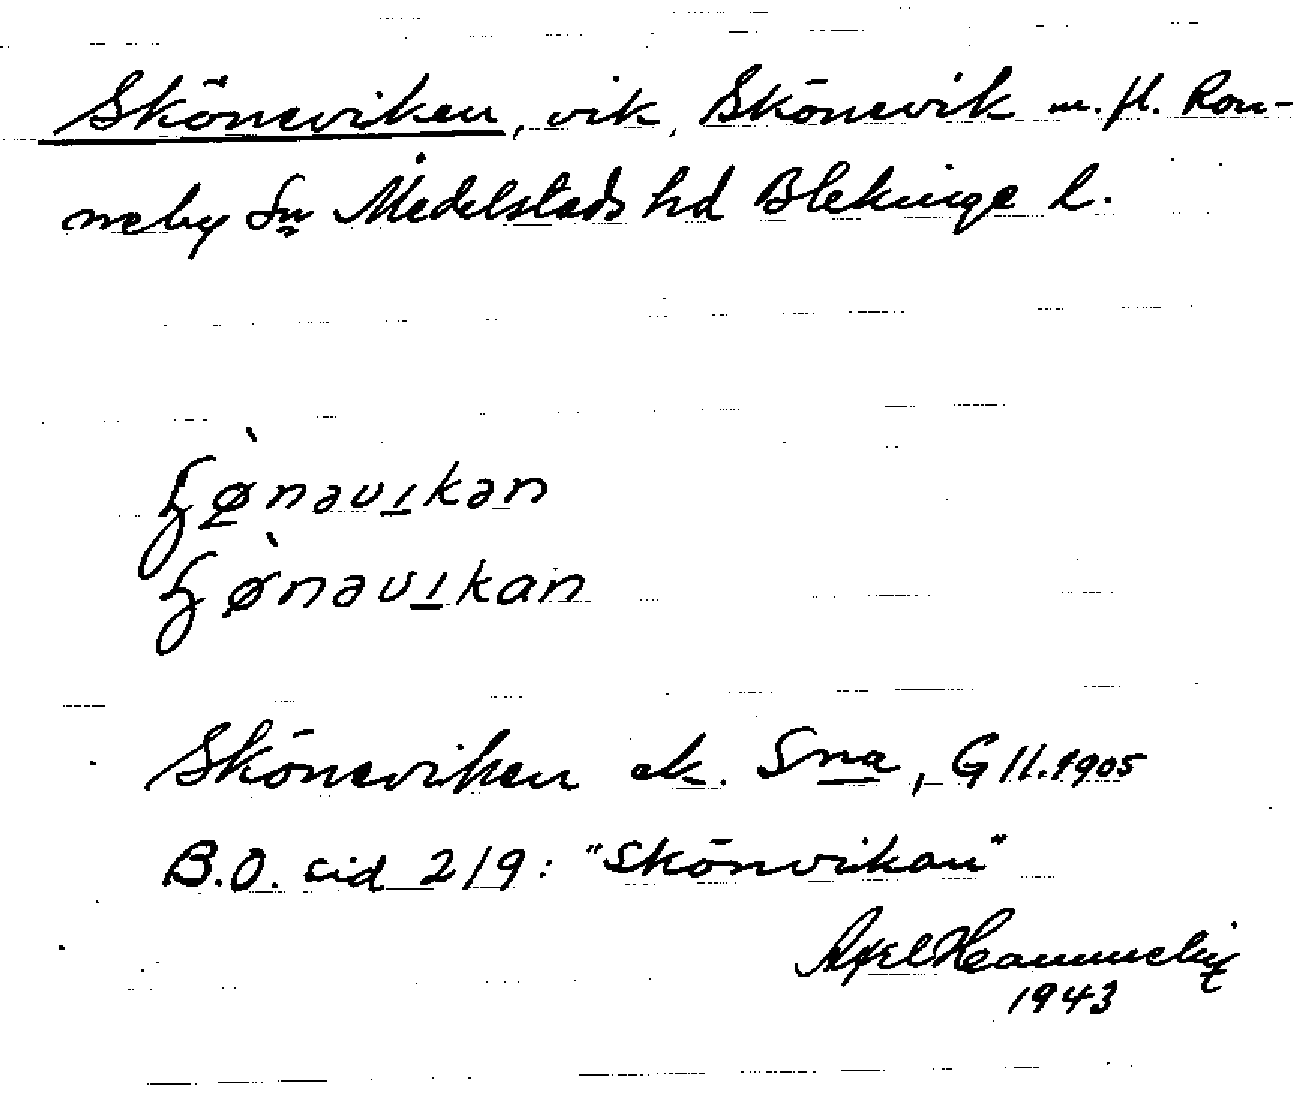 Sköneviken, vik, Skönevik m.fl. Ron-
neby Sn Medelstads hd Blekinge l.
ɧø̀nəvɪkən
ɧø̀nəvɪkan
Sköneviken ek. Sna, G 11. 1905
B.O. sid 219: "Skönvikan"
Axel
1943